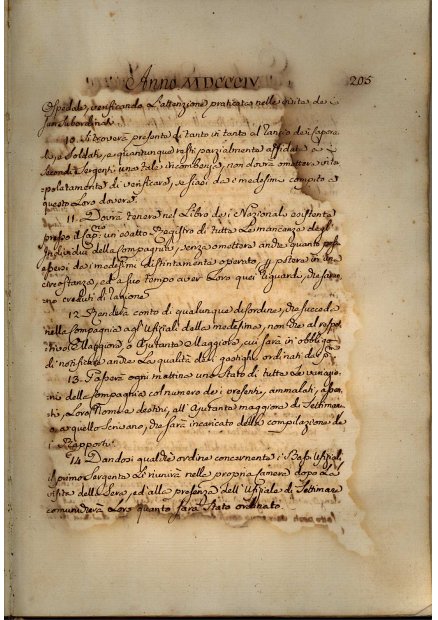 Anno MDCCCIV 205
Ospedale, verificando l'attenzione praticata nelle visite de i
suoi subordinati.
10. Si troverà presente di tanto in tanto al rancio de i Capora
li, e Soldati, e quantunque resti parzialmente affidat
Secondi Sergenti una tale incombenza, non dovrà omettere rite
polatamente di verificare, se siasi da e medesimi compito a
questo Loro dovere.
11. Dovrà tenere nel Libro de i Nazionali esistente
presso il Cap.no un esatto Registro di tutte le mancanze degl'
Individui della Compagnia, senza omettere anche quanto
da i medesimi distintamente operato, potere in
circostanza, ed a suo tempo aver Loro quei riguardi, che saran
no creduti di ragione.
12. Renderà conto di qualunque disordine, che succeda
nella Compagnia agl'Ufiziali della medesima, non che al respet
tivo Maggiore, o Ajutante Maggiore, cui sarà in obbligo
di notificare anche la qualità de i gastighi ordinati
13. Passerà ogni mattina uno Stato di tutte le variazio
ni della Compagnia col numero de i presenti, ammalati,
Loro Nomi e destini, all'Ajutante maggiore di Settimana
o a quello Scrivano, che sarà incaricato della compilazione de
i Rapporti.
14. Dandosi qualche ordine concernente i Bassi Ufiziali,
il primo Sergente Li riunirà nella propria Camera dopo la
visita della Sera, ed alla presenza dell'Ufiziale di Settimana
comunicherà Loro quanto sarà stato ordinato.